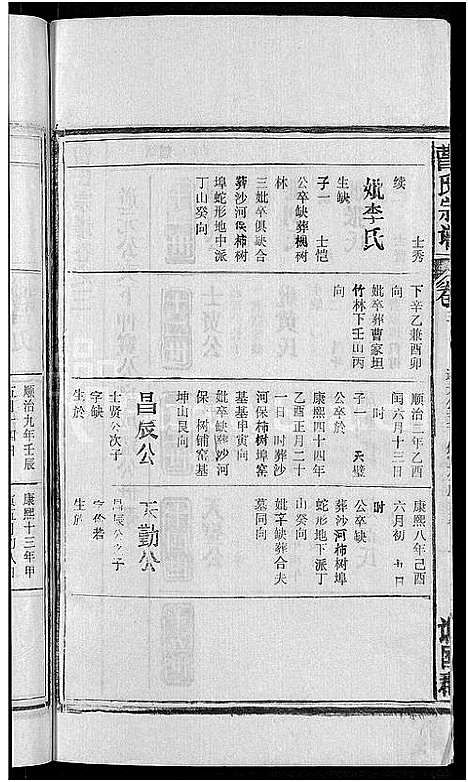 曹氏宗譜
卷
士秀
续
妣李氏
生缺
子一 士恺
公卒缺葬槐树
林
三妣卒俱缺合
葬沙河保柿树
埠蛇形地中派
丁山癸向
下辛乙兼酉卯
向
妣卒葬曹家坦
竹林下壬山丙
向
顺治二年乙酉
闰六月十三日
时
子一 天
公卒於
康熙四十四年
乙酉正月二十
一日 时葬沙
河保柿树埠窑
基基甲寅向
妣卒缺葬沙河
保 树铺窑基
坤山艮向
昌辰公
士贤公次子
字缺
生於
康熙八年己酉
六月初 九日
时
公卒缺
葬沙河柿树埠
蛇形地下派丁
山癸向
妣 缺葬合夫
墓同向
天勤公
昌辰公 子
字 若
生於
顺治九年壬辰
康熙十三年甲